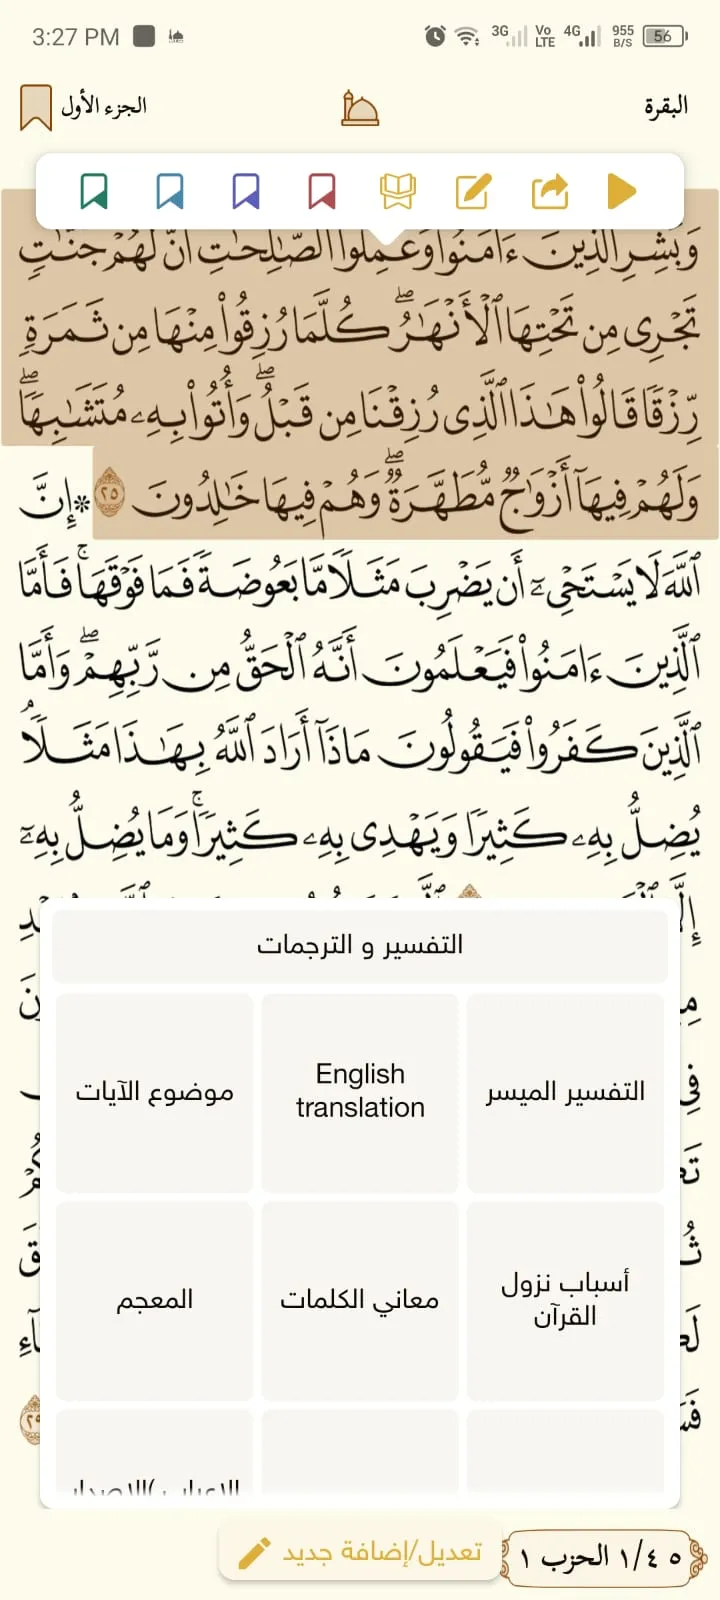 3:27 PM
3G Vo LTE 4G 955 B/S 56
البقرة
الجزء الأول
وَبَشِّرِ ٱلَّذِينَ ءَامَنُواْ وَعَمِلُواْ ٱلصَّٰلِحَٰتِ أَنَّ لَهُمْ جَنَّٰتٖ
تَجْرِي مِن تَحْتِهَا ٱلْأَنْهَٰرُۖ كُلَّمَا رُزِقُواْ مِنْهَا مِن ثَمَرَةٖ
رِّزْقٗا قَالُواْ هَٰذَا ٱلَّذِي رُزِقْنَا مِن قَبْلُۖ وَأُتُواْ بِهِۦ مُتَشَٰبِهٗاۖ
وَلَهُمْ فِيهَآ أَزْوَٰجٞ مُّطَهَّرَةٞۖ وَهُمْ فِيهَا خَٰلِدُونَ ٢٥ ۞إِنَّ
ٱللَّهَ لَا يَسْتَحْيِۦٓ أَن يَضْرِبَ مَثَلٗا مَّا بَعُوضَةٗ فَمَا فَوْقَهَاۚ فَأَمَّا
ٱلَّذِينَ ءَامَنُواْ فَيَعْلَمُونَ أَنَّهُ ٱلْحَقُّ مِن رَّبِّهِمْۖ وَأَمَّا
ٱلَّذِينَ كَفَرُواْ فَيَقُولُونَ مَاذَآ أَرَادَ ٱللَّهُ بِهَٰذَا مَثَلٗاۘ
يُضِلُّ بِهِۦ كَثِيرٗا وَيَهْدِي بِهِۦ كَثِيرٗاۚ وَمَا يُضِلُّ بِهِۦٓ
التفسير و الترجمات
التفسير الميسر
English translation
موضوع الآيات
أسباب نزول القرآن
معاني الكلمات
المعجم
٢٩
تعديل/إضافة جديد
٥ ١/٤ الحزب ١